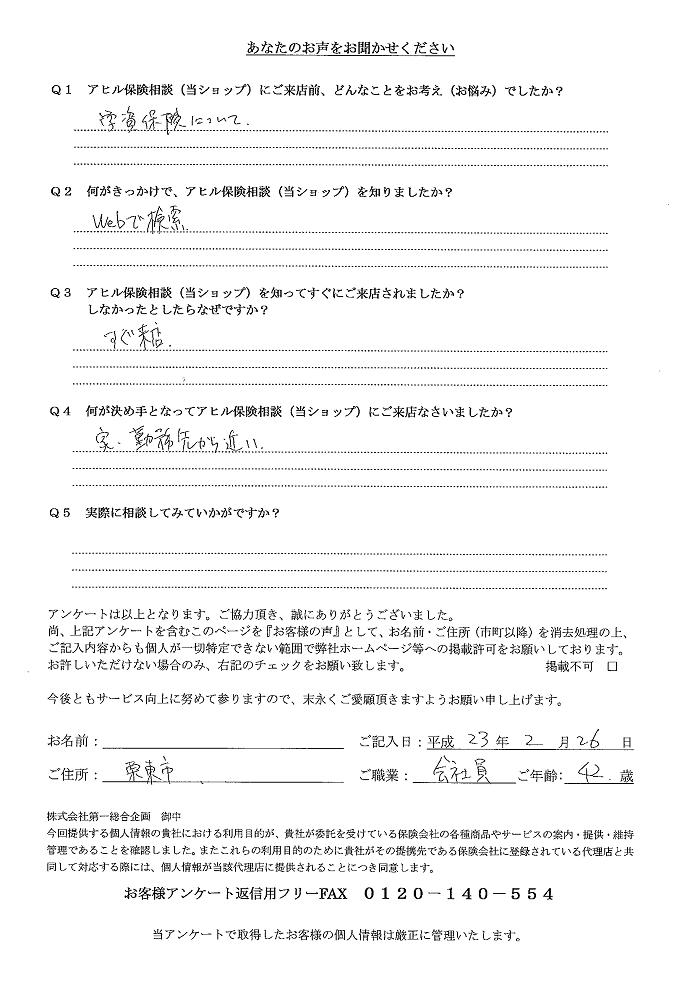 あなたのお声をお聞かせください
Q1 アヒル保険相談（当ショップ）にご来店前、どんなことをお考え（お悩み）でしたか？
学資保険について.
Q2 何がきっかけで、アヒル保険相談（当ショップ）を知りましたか？
Webで検索
Q3 アヒル保険相談（当ショップ）を知ってすぐにご来店されましたか？
しなかったとしたらなぜですか？
すぐ来店.
Q4 何が決め手となってアヒル保険相談（当ショップ）にご来店なさいましたか？
家・勤務先から近い.
Q5 実際に相談してみていかがですか？
アンケートは以上となります。ご協力頂き、誠にありがとうございました。
尚、上記アンケートを含むこのページを『お客様の声』として、お名前・ご住所（市町以降）を消去処理の上、
ご記入内容からも個人が一切特定できない範囲で弊社ホームページ等への掲載許可をお願いしております。
お許しいただけない場合のみ、右記のチェックをお願い致します。 掲載不可 □
今後ともサービス向上に努めて参りますので、末永くご愛顧頂きますようお願い申し上げます。
お名前： ご記入日：平成 23 年 2 月 26 日
ご住所： 栗東市 ご職業： 会社員 ご年齢： 42. 歳
株式会社第一総合企画 御中
今回提供する個人情報の貴社における利用目的が、貴社が委託を受けている保険会社の各種商品やサービスの案内・提供・維持
管理であることを確認しました。またこれらの利用目的のために貴社がその提携先である保険会社に登録されている代理店と共
同して対応する際には、個人情報が当該代理店に提供されることにつき同意します。
お客様アンケート返信用フリーFAX 0120－140－554
当アンケートで取得したお客様の個人情報は厳正に管理いたします。